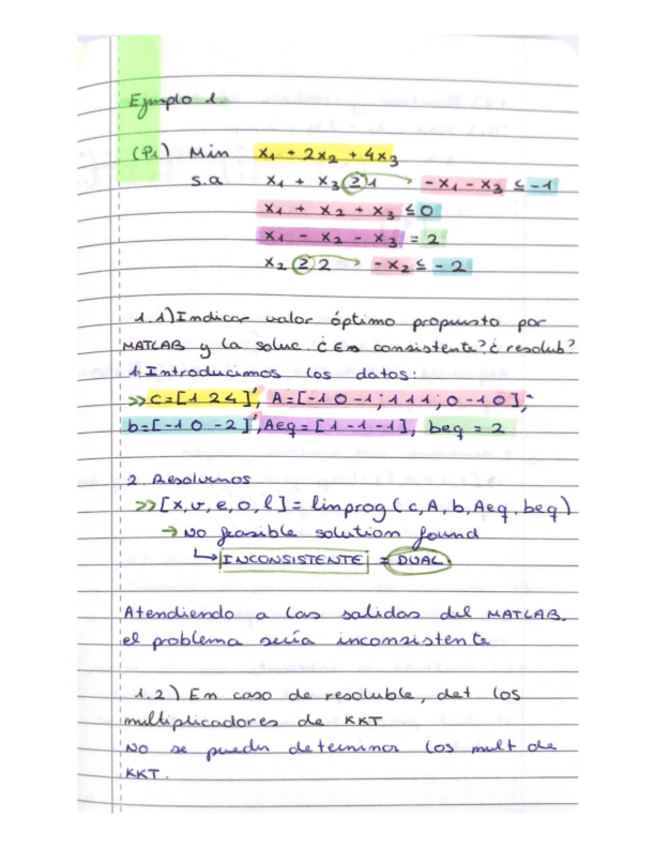 Ejmplo 1.
(P1) Min x1 + 2x2 + 4x3
s.a x1 + x3 ≥ 1 → -x1 - x3 ≤ -1
x1 + x2 + x3 ≤ 0
x1 - x2 - x3 = 2
x2 ≥ 2 → -x2 ≤ -2
1.1) Indicar valor óptimo propuesto por
MATLAB y la soluc. ¿Es consistente? ¿resolub?
1. Introducimos los datos:
>> c=[1 2 4]', A=[-1 0 -1; 1 1 1; 0 -1 0],
b=[-1 0 -2]', Aeq=[1 -1 -1], beq = 2
2. Resolvemos
>> [x,v,e,o,l] = linprog(c,A,b,Aeq,beq)
→ No feasible solution found
↳ INCONSISTENTE = DUAL
Atendiendo a las salidas del MATLAB,
el problema sería inconsistente
1.2) En caso de resoluble, det los
multiplicadores de KKT
No se pueden determinar los mult de
KKT.